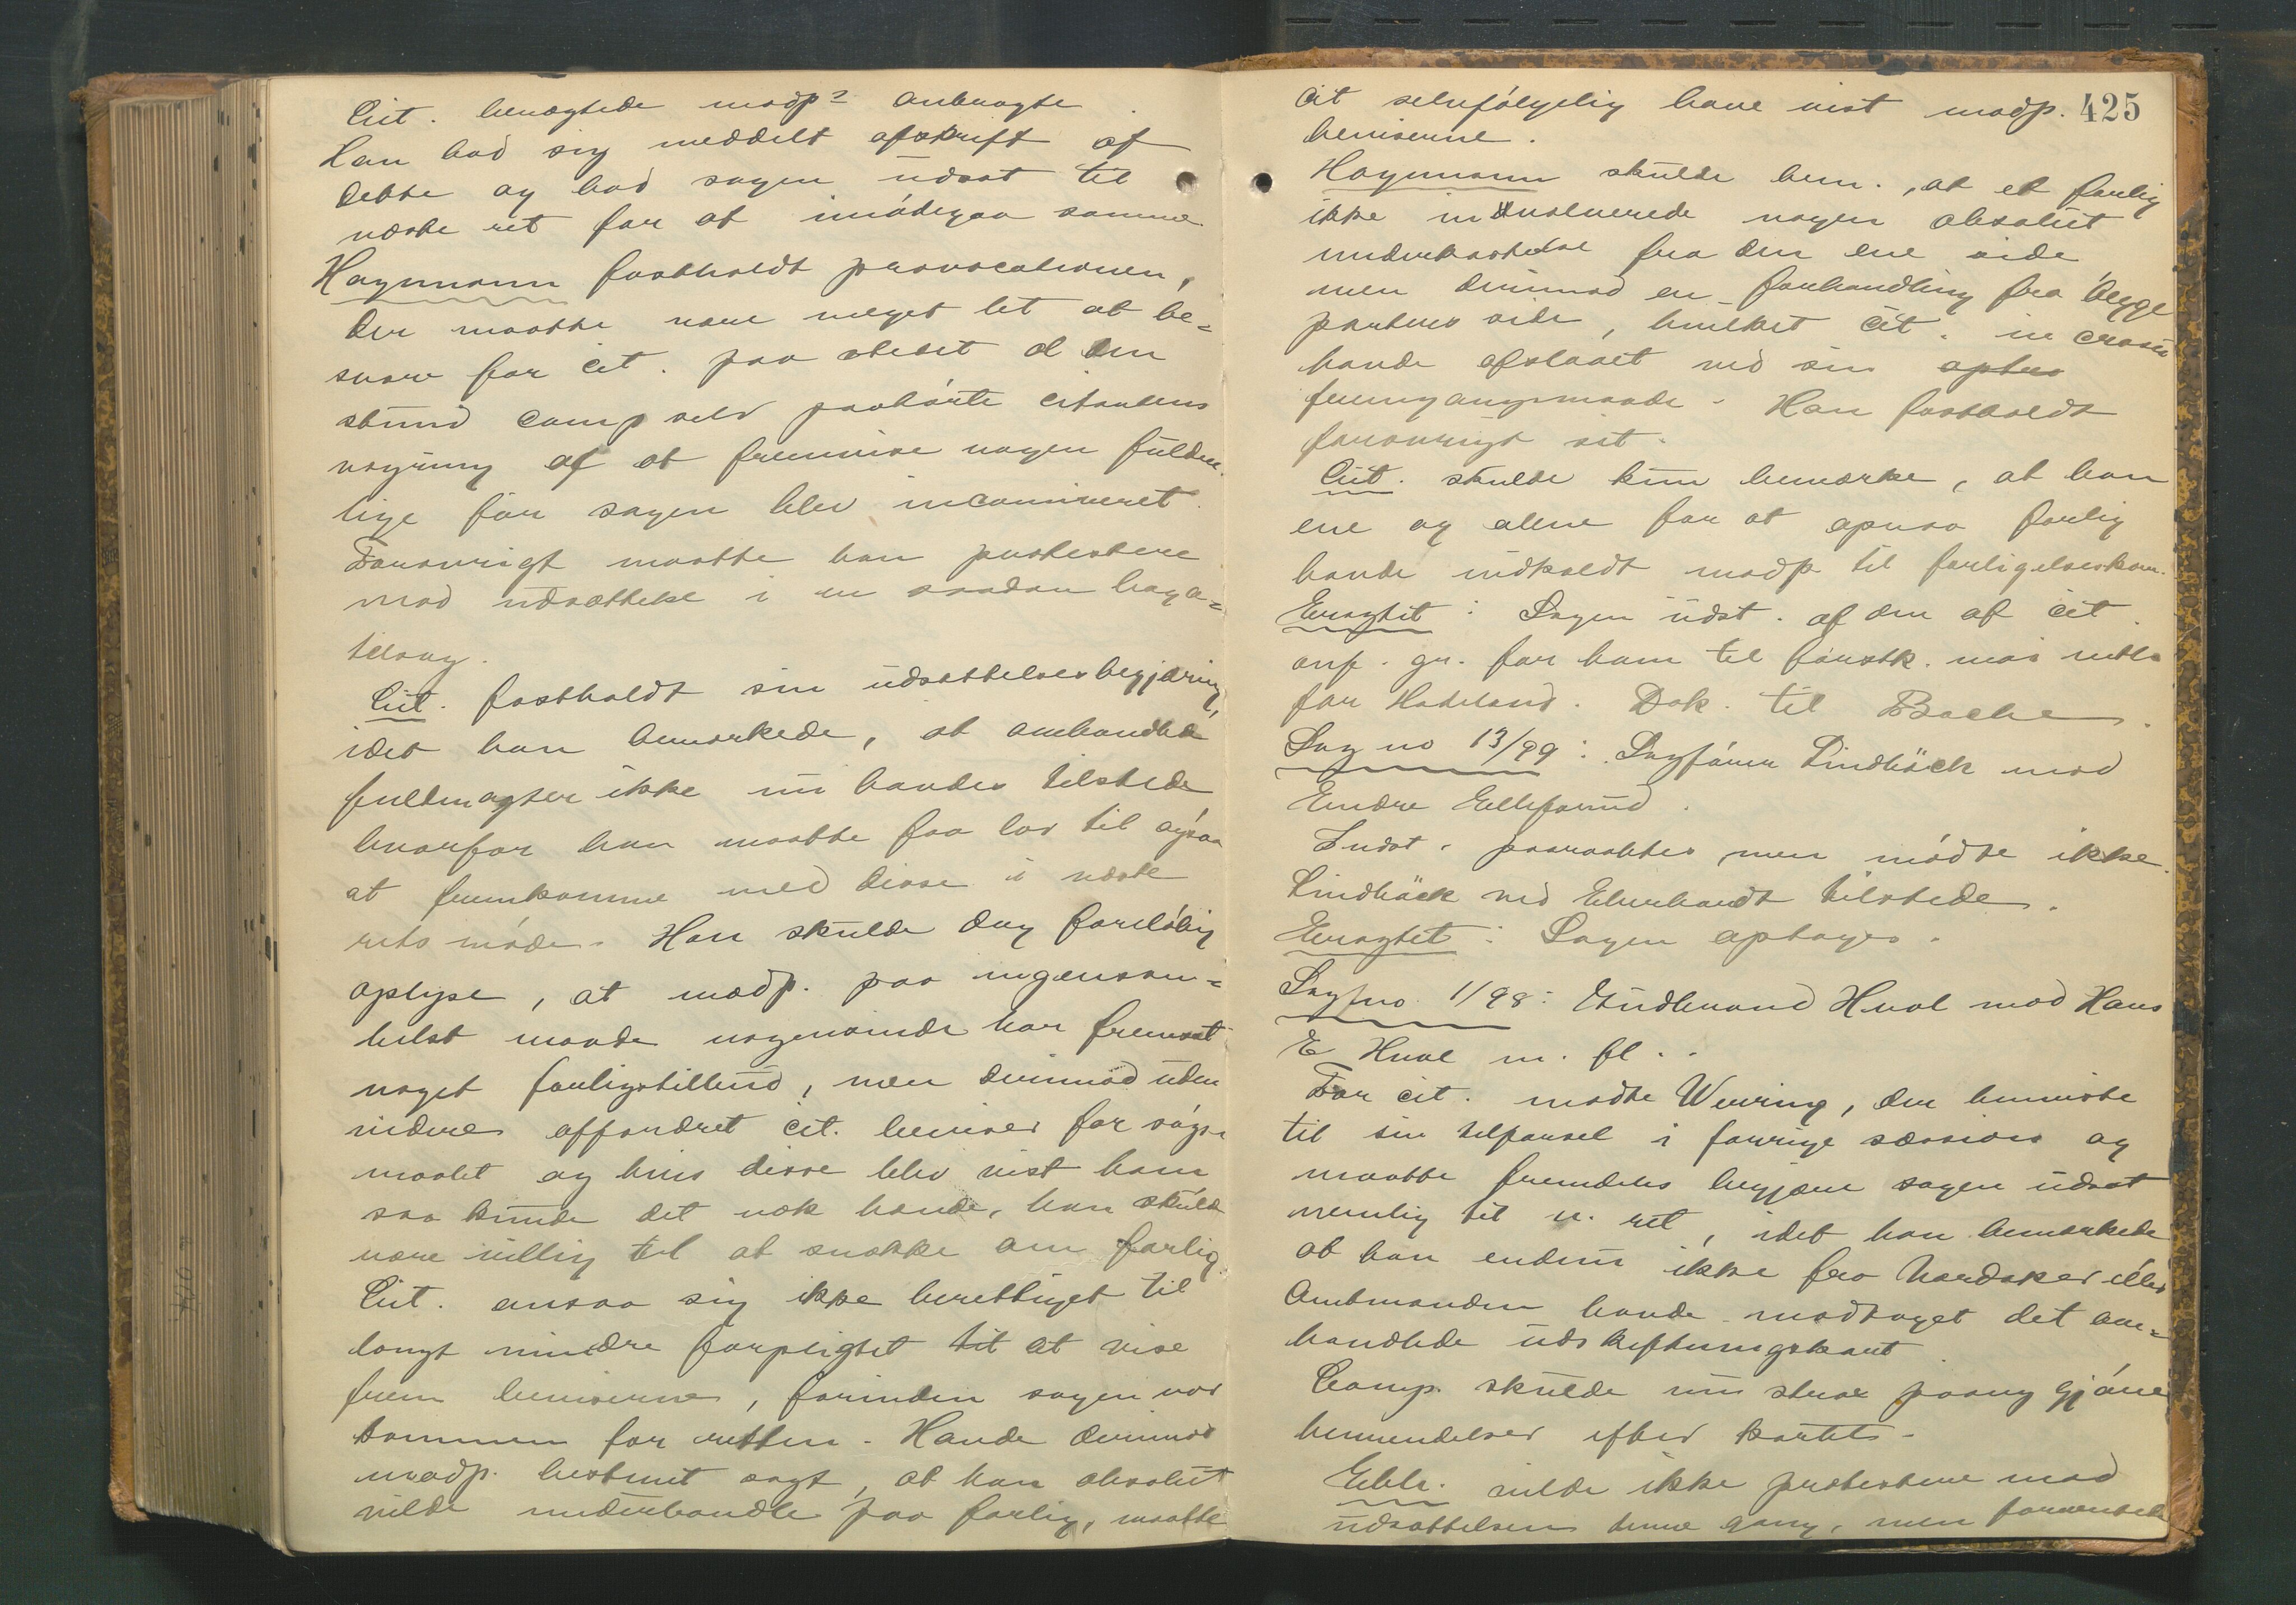 Cit. benægtede modp⸗ anbragte.
Han bad sig meddelt afskrift af
dette og bad sagen udsat til
næste ret for at imødegaa samme
Hagmann fastholdt provocationen,
der maatte være meget let at be=
svare for cit. paa stedet al den
stund comp selv paahørte citantens
vægring af at fremvise nogen fuldm.
lige før sagen blev incamineret.
Forøvrigt maatte han protestere
mod udsættelse i en saadan baga=
telsag.
Cit. fastholdt sin udsættelsesbegjæring,
idet han bemærkede, at omhandlede
fuldmagter ikke nu havdes tilstede
hvorfor han maatte faa lov til ogsaa
at fremkomme med disse i næste
rets møde. Han skulde dog foreløbig
oplyse, at modp. paa ingensom=
helst maade nogensinde har fremsat
noget forligstilbud, men derimod uden
videre affordret cit. beviser for søgs-
maalet og hvis disse blev vist ham
saa kunde det nok hænde, han skulde
være villig til at snakke om forlig.
Cit. ansaa sig ikke berettiget til
langt mindre forpligtet til at vise
frem beviserne, forinden sagen var
kommen for retten. Havde derimod
modp. bestemt sagt, at han absolut
vilde underhandle paa forlig, maatte
425
cit selvfølgelig have vist modp.
beviserne.
Hagmann skulde bem., at et forlig
ikke involverede nogen absolut
underkastelse fra den ene side
men derimod en forhandling fra begge
parters side, hvilket cit. in casu
havde afslaaet ved sin optræ
fremgangsmaade. Han fastholdt
forøvrigt sit.
Cit. skulde kun bemærke, at han
ene og alene for at opnaa forlig
havde indkaldt modp til forligelseskom.
Eragtet: Sagen udst. af den af cit.
anf. gr. for ham til førstk. mos retten
for Hadeland. Dok. til Bache.
Sag no 13/99: Sagfører Lindbäck mod
Endre Ellefsrud.
Indst. paaraabtes, men mødte ikke.
Lindbäck ved Eberhardt tilstede.
Eragtet: Sagen optages.
Sag no. 1/98: Gudbrand Hval mod Hans
E Hval m. fl..
For cit. mødte Wenring, der henviste
til sin tilførsel i forrige session og
maatte fremdeles begjære sagen udsat
nemlig til n. ret, idet han bemærkede
at han endnu ikke fra Vardaker eller
Amtmanden havde modtaget det om=
handlede udskiftningskart.
Comp. skulde nu strax paany gjøre
henvendelser efter kartet.
Ebbe. vilde ikke protestere mod
udsættelsen denne gang, men forventede